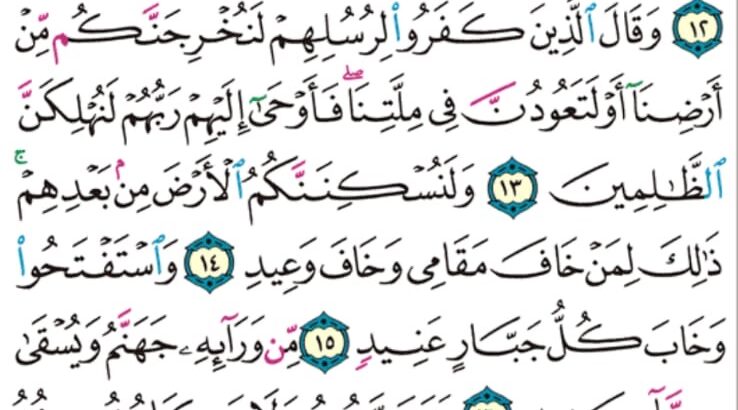 ١٢ وَقَالَ ٱلَّذِينَ كَفَرُوا۟ لِرُسُلِهِمْ لَنُخْرِجَنَّكُم مِّنْ
أَرْضِنَآ أَوْ لَتَعُودُنَّ فِى مِلَّتِنَا ۖ فَأَوْحَىٰٓ إِلَيْهِمْ رَبُّهُمْ لَنُهْلِكَنَّ
ٱلظَّـٰلِمِينَ ١٣ وَلَنُسْكِنَنَّكُمُ ٱلْأَرْضَ مِنۢ بَعْدِهِمْ ۚ
ذَٰلِكَ لِمَنْ خَافَ مَقَامِى وَخَافَ وَعِيدِ ١٤ وَٱسْتَفْتَحُوا۟
وَخَابَ كُلُّ جَبَّارٍ عَنِيدٍ ١٥ مِّن وَرَآئِهِۦ جَهَنَّمُ وَيُسْقَىٰ